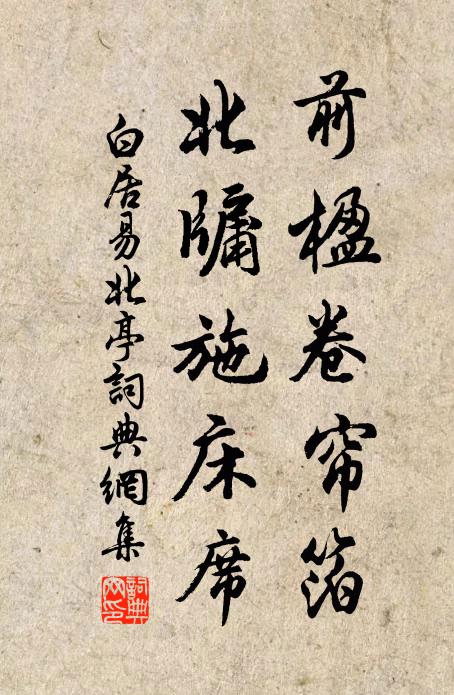 前楹卷帘箔
北牖施床席
白居易北亭詞典網集
詞典
网印